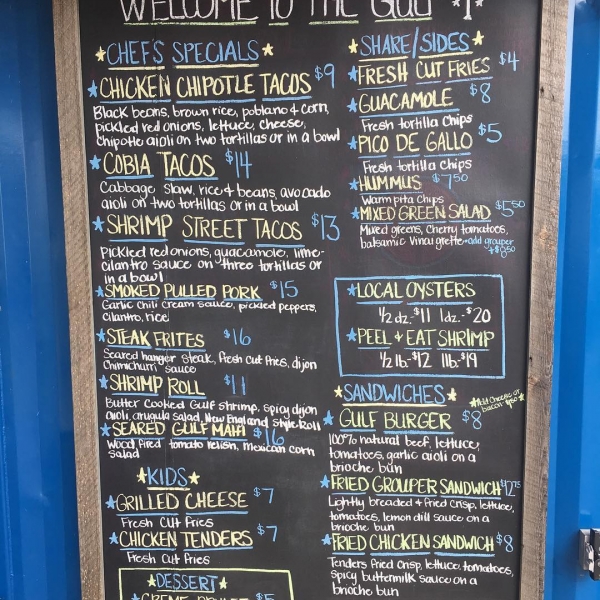 WELCOME TO THE GULF
CHEF'S SPECIALS
CHICKEN CHIPOTLE TACOS $9
Black beans, brown rice, poblano & corn,
pickled red onions, lettuce, cheese,
chipotle aioli on two tortillas or in a bowl
COBIA TACOS $14
Cabbage slaw, rice & beans, avocado
aioli on two tortillas or in a bowl
SHRIMP STREET TACOS $13
Pickled red onions, guacamole, lime-
cilantro sauce on three tortillas or
in a bowl
SMOKED PULLED PORK $15
Garlic Chili Cream sauce, pickled peppers,
cilantro, rice
STEAK FRITES $16
Seared hanger steak, fresh cut fries, dijon
Chimichurri sauce
SHRIMP ROLL $11
Butter cooked Gulf shrimp, spicy dijon
aioli, arugula salad, New England style Roll
SEARED GULF MAHI $16
Wood fired tomato relish, Mexican corn
salad
KIDS
GRILLED CHEESE $7
Fresh Cut fries
CHICKEN TENDERS $7
Fresh Cut fries
DESSERT
SHARE/SIDES
FRESH CUT FRIES $4
GUACAMOLE $8
Fresh tortilla chips
PICO DE GALLO $5
Fresh tortilla chips
HUMMUS $7.50
Warm pita Chips
MIXED GREEN SALAD $5.50
Mixed greens, Cherry tomatoes,
balsamic vinaigrette - add grouper
+$8.50
LOCAL OYSTERS
1/2 dz.-$11 1dz.-$20
PEEL & EAT SHRIMP
1/2 lb-$12 1lb-$19
SANDWICHES
Add Cheese or
bacon
GULF BURGER $8
100% natural beef, lettuce,
tomatoes, garlic aioli on a
brioche bun
FRIED GROUPER SANDWICH $12.75
Lightly breaded & fried crisp, lettuce,
tomatoes, lemon dill sauce on a
brioche bun
FRIED CHICKEN SANDWICH $8
Tenders fried crisp, lettuce, tomatoes,
spicy buttermilk sauce on a
brioche bun